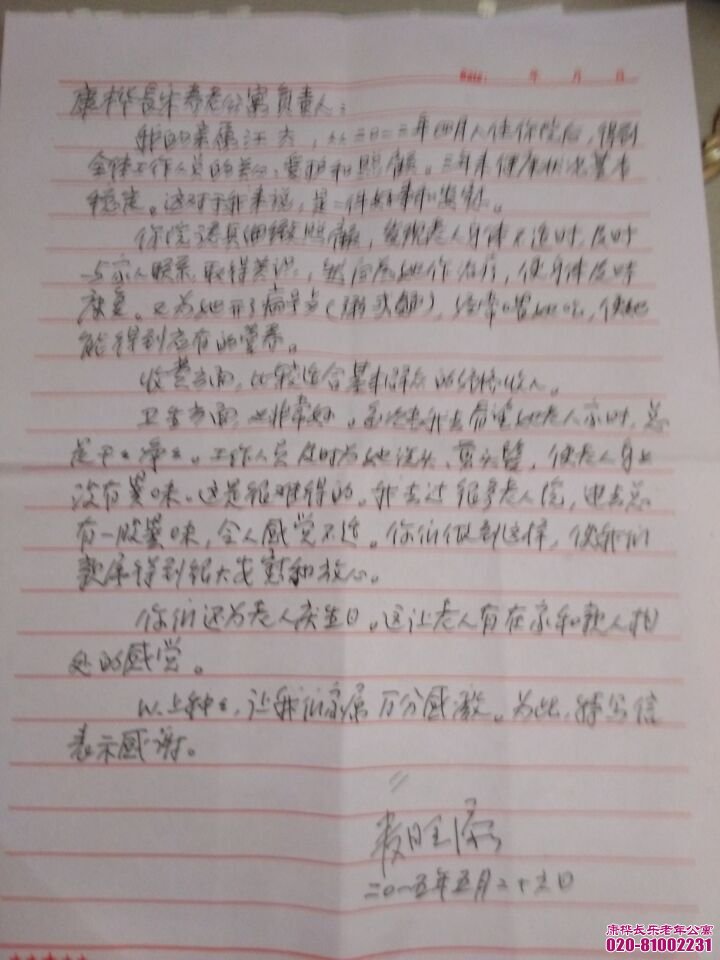 Date: 年 月 日
康桦长乐养老公寓负责人：
我的亲属汪 ，从二〇一二年四月入住你院后，得到
全体工作人员的关心、爱护和照顾。三年来健康状况基本
稳定。这对于我来说，是一件好事和安慰。
你院认真细致照顾，发现老人身体不适时，及时
与家人联系，取得共识，然后为她作治疗，使身体及时
康复。又为她开了病号 （粥或面），经常喂她吃，使她
能得到应有的营养。
收费方面，比较适合基本群众的经济收入。
卫生方面，也非常好。每次去我去看望她老人家时，总
是干干净净。工作人员及时为她洗头、剪头发，使老人身上
没有异味。这是很难得的。我去过很多老人院，进去总
有一股异味，令人感觉不适。你们做到这样，使我们
亲属得到很大安慰和放心。
你们还为老人庆生日。这让老人有在家和亲人相
处的感觉。
以上种种，让我们家属万分感激。为此，特写信
表示感谢。
二〇一五年五月二十六日
康桦长乐老年公寓
020-81002231